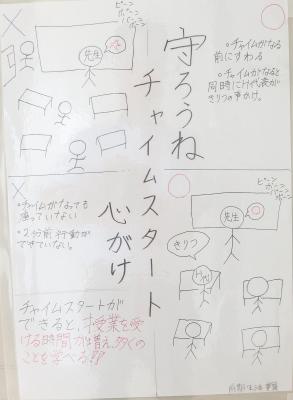 守ろうね
チャイムスタート
心がけ
ピーン
ポーン
パーン
ポーン
先生
・チャイムがなる
前にすわる
・チャイムがなると
同時に
きりつの声かけ。
・チャイムがなっても
座っていない
・2分前行動が
できていない。
ピーン
ポーン
パーン
ポーン
先生
きりつ
チャイムスタートが
できると、授業を受
ける時間が増え、多くの
ことを学べる!!